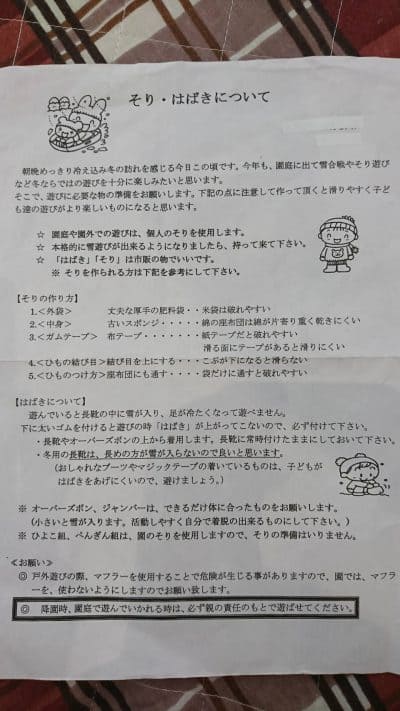 そり・はばきについて
朝晩めっきり冷え込み冬の訪れを感じる今日この頃です。今年も、園庭に出て雪合戦やそり遊び
など冬ならではの遊びを十分に楽しみたいと思います。
そこで、遊びに必要な物の準備をお願いします。下記の点に注意して作って頂くと滑りやすく子ど
も達の遊びがより楽しいものになると思います。
☆ 園庭や園外での遊びは、個人のそりを使用します。
☆ 本格的に雪遊びが出来るようになりましたら、持って来て下さい。
☆ 「はばき」「そり」は市販の物でいいです。
※ そりを作られる方は下記を参考にして下さい。
【そりの作り方】
1.<外袋> 丈夫な厚手の肥料袋・・米袋は破れやすい
2.<中身> 古いスポンジ・・・・・綿の座布団は綿が片寄り重く乾きにくい
3.<ガムテープ> 布テープ・・・・・・・紙テープだと破れやすい
滑る面にテープがあると滑りにくい
4.<ひもの結び目>結び目を上にする・・・・こぶが下になると滑らない
5.<ひものつけ方>座布団にも通す・・・・・袋だけに通すと破れやすい
【はばきについて】
遊んでいると長靴の中に雪が入り、足が冷たくなって遊べません。
下に太いゴムを付けると遊びの時「はばき」が上がってこないので、必ず付けて下さい。
・長靴やオーバーズボンの上から着用します。長靴に常時付けたままにしておいて下さい。
・冬用の長靴は、長めの方が雪が入らないので良いと思います。
(おしゃれなブーツやマジックテープの着いているものは、子どもが
はばきをあげにくいので、避けましょう。)
※ オーバーズボン、ジャンバーは、できるだけ体に合ったものをお願いします。
(小さいと雪が入ります。活動しやすく自分で着脱の出来るものにして下さい。)
※ ひよこ組、ぺんぎん組は、園のそりを使用しますので、そりの準備はいりません。
≪お願い≫
◎ 戸外遊びの際、マフラーを使用することで危険が生じる事がありますので、園では、マフラ
ーを、使わないようにしますのでお願い致します。
◎ 降園時、園庭で遊んでいかれる時は、必ず親の責任のもとで遊ばせてください。